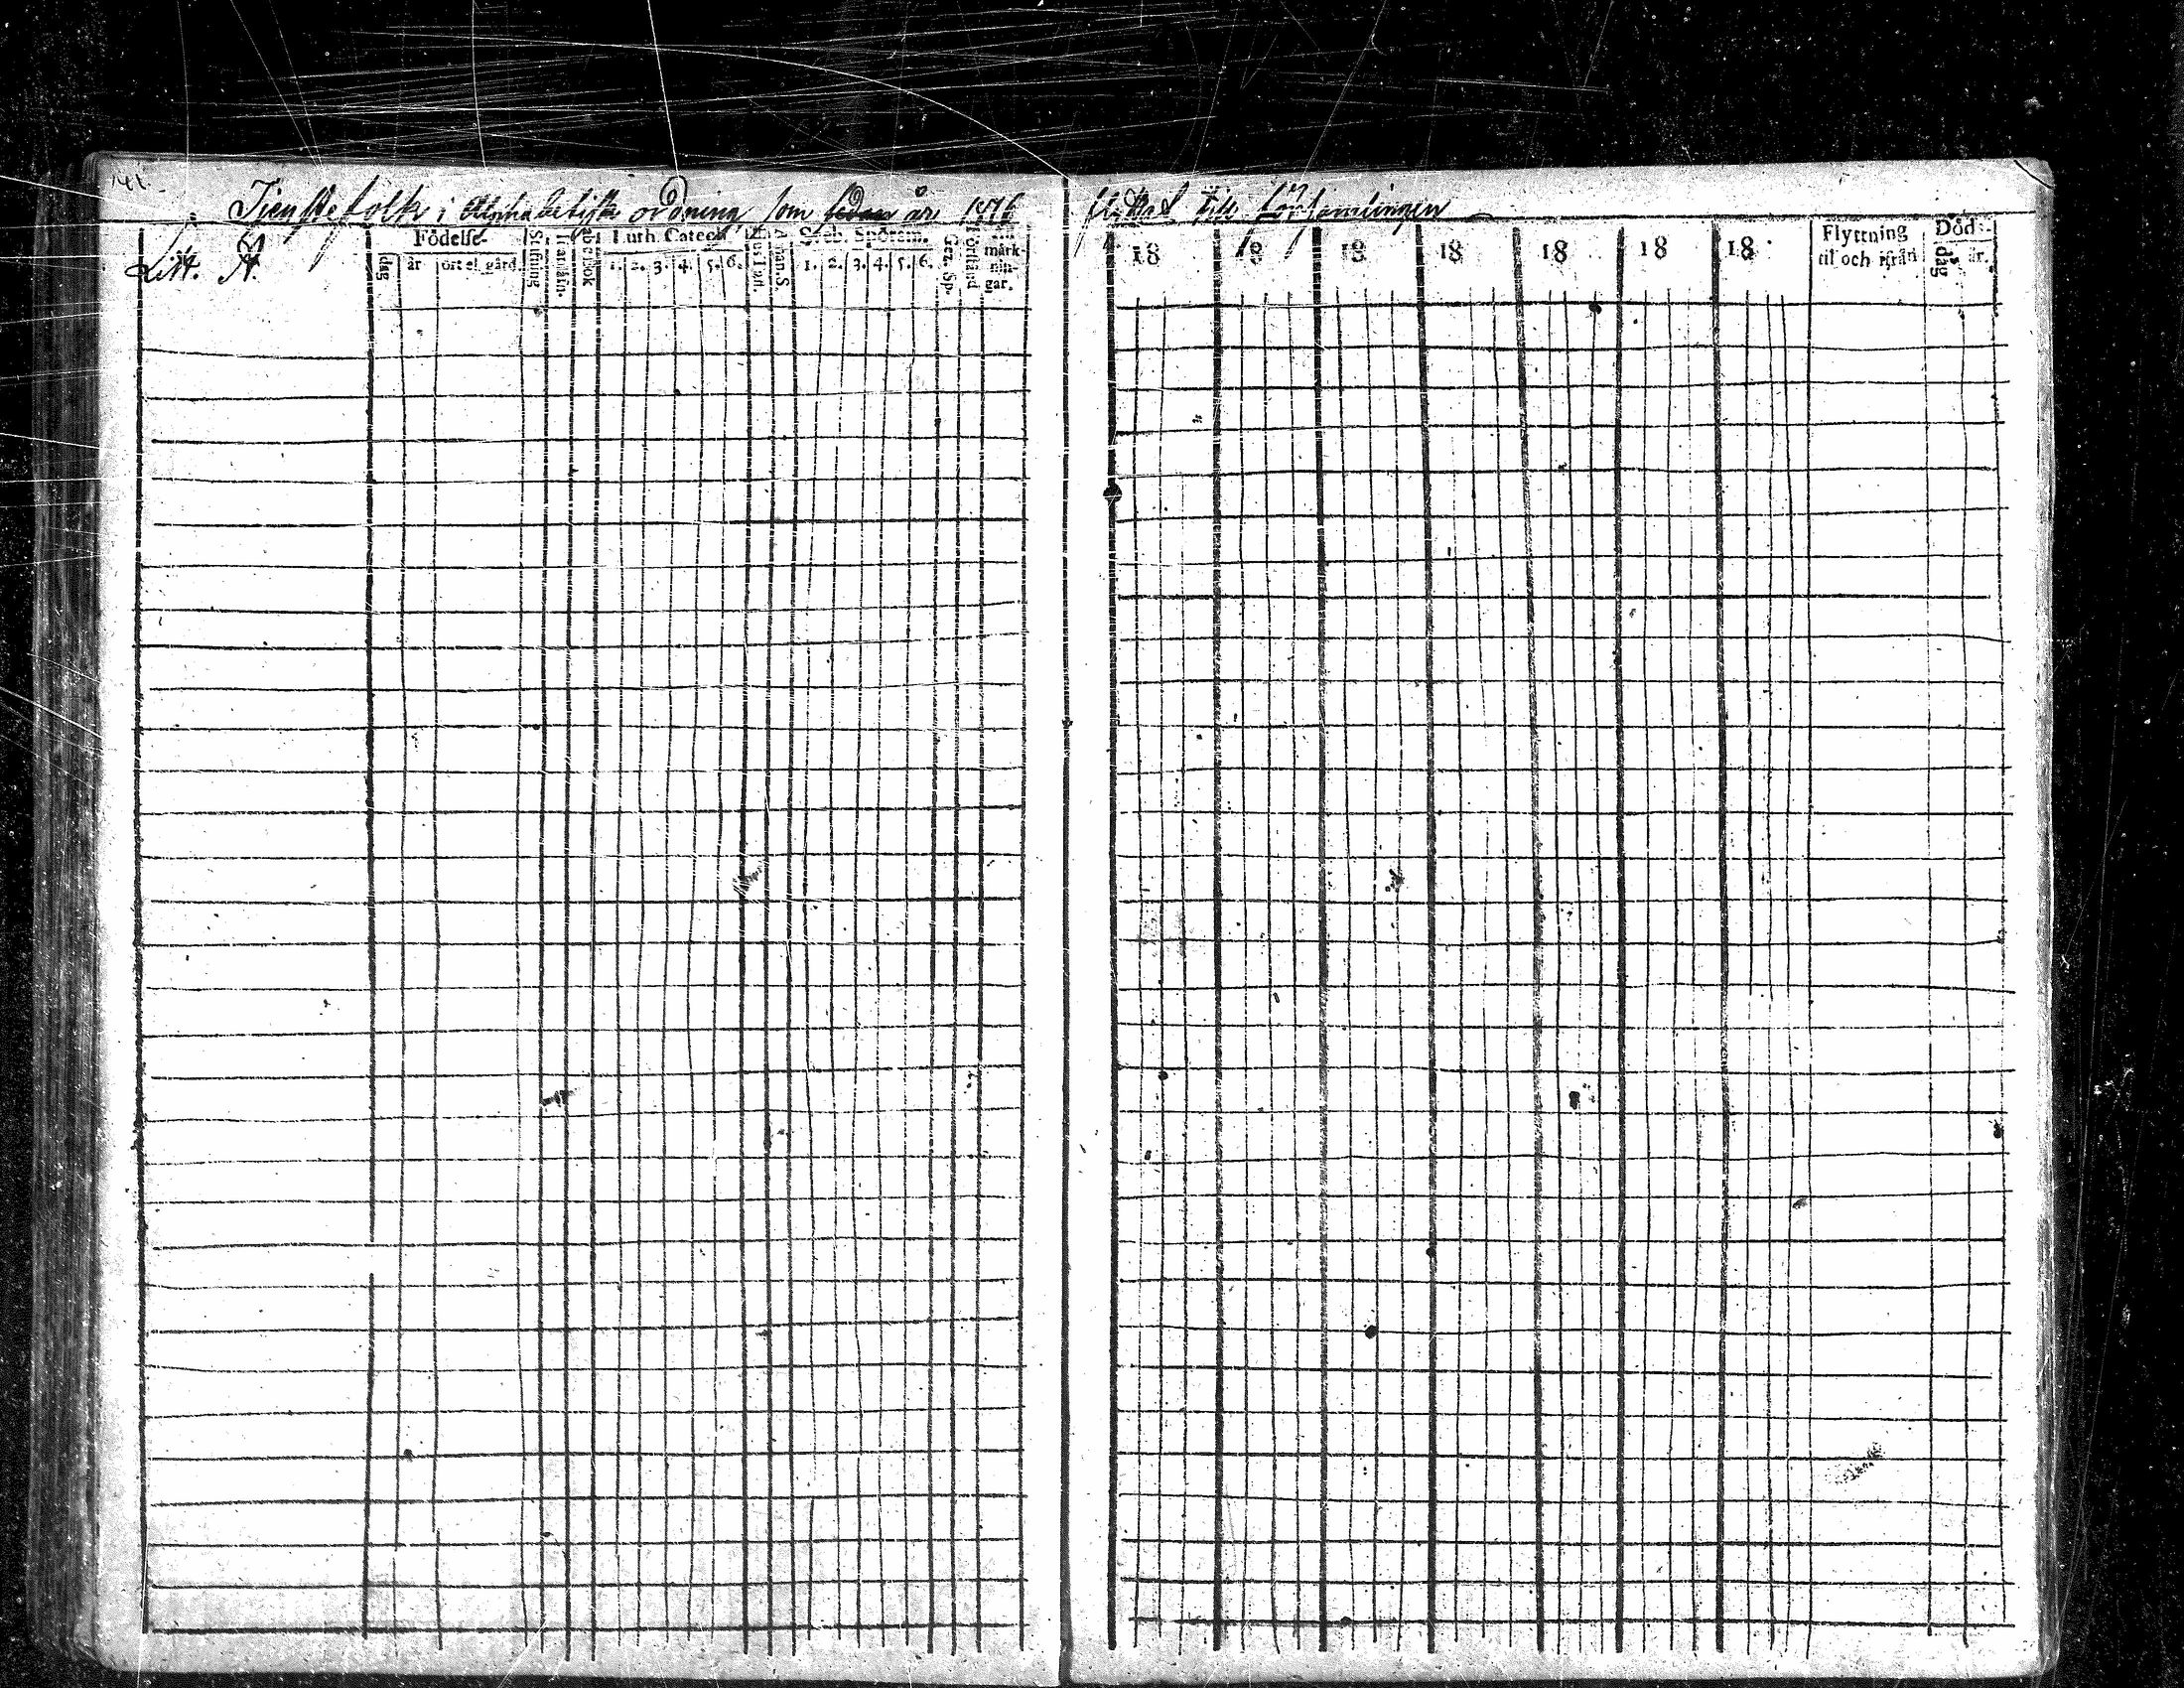 Tienstefolk i Alphabetisk ordning som sedan år 1816 flyttat till församlingen
Litt. A.
Födelse-
dag år ort el. gård.
Stafning
Innanläsn.
Abc bok
Luth. Catech.
1. 2. 3. 4. 5. 6.
Hust.
Athan. S.
Sveb. Spörsm.
1. 2. 3. 4. 5. 6.
Gez. Sp.
Förstånd
märk-
nin-
gar.
18 18 18 18 18 18 18
Flyttning
til och ifrån
Död:
dag år.